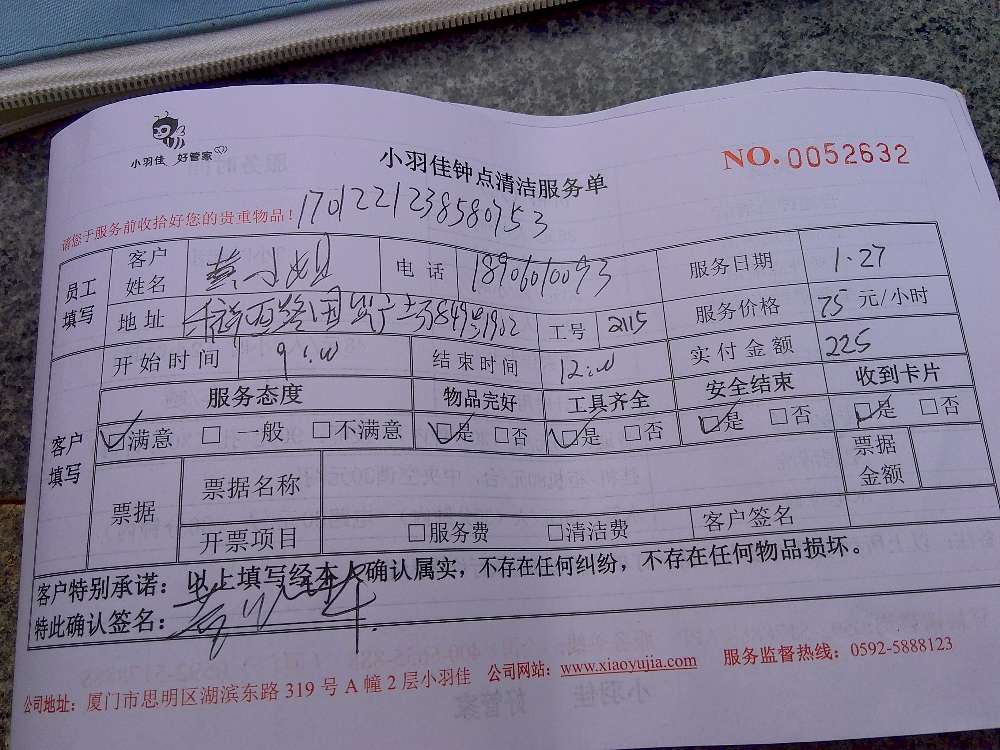 小羽佳 好管家
小羽佳钟点清洁服务单
NO. 0052632
请您于服务前收拾好您的贵重物品!
1701221238580753
员工填写 客户姓名 小姐 电话 18906010093 服务日期 1·27
地址 849号1902 工号 2115 服务价格 75 元/小时
开始时间 9:00 结束时间 12:00 实付金额 225
服务态度 物品完好 工具齐全 安全结束 收到卡片
客户填写 ☑满意 □一般 □不满意 ☑是 □否 ☑是 □否 ☑是 □否 ☑是 □否
票据 票据名称 票据金额
开票项目 □服务费 □清洁费 客户签名
客户特别承诺：以上填写经本人确认属实，不存在任何纠纷，不存在任何物品损坏。
特此确认签名：
公司地址：厦门市思明区湖滨东路 319 号 A 幢 2 层小羽佳 公司网站：www.xiaoyujia.com 服务监督热线：0592-5888123